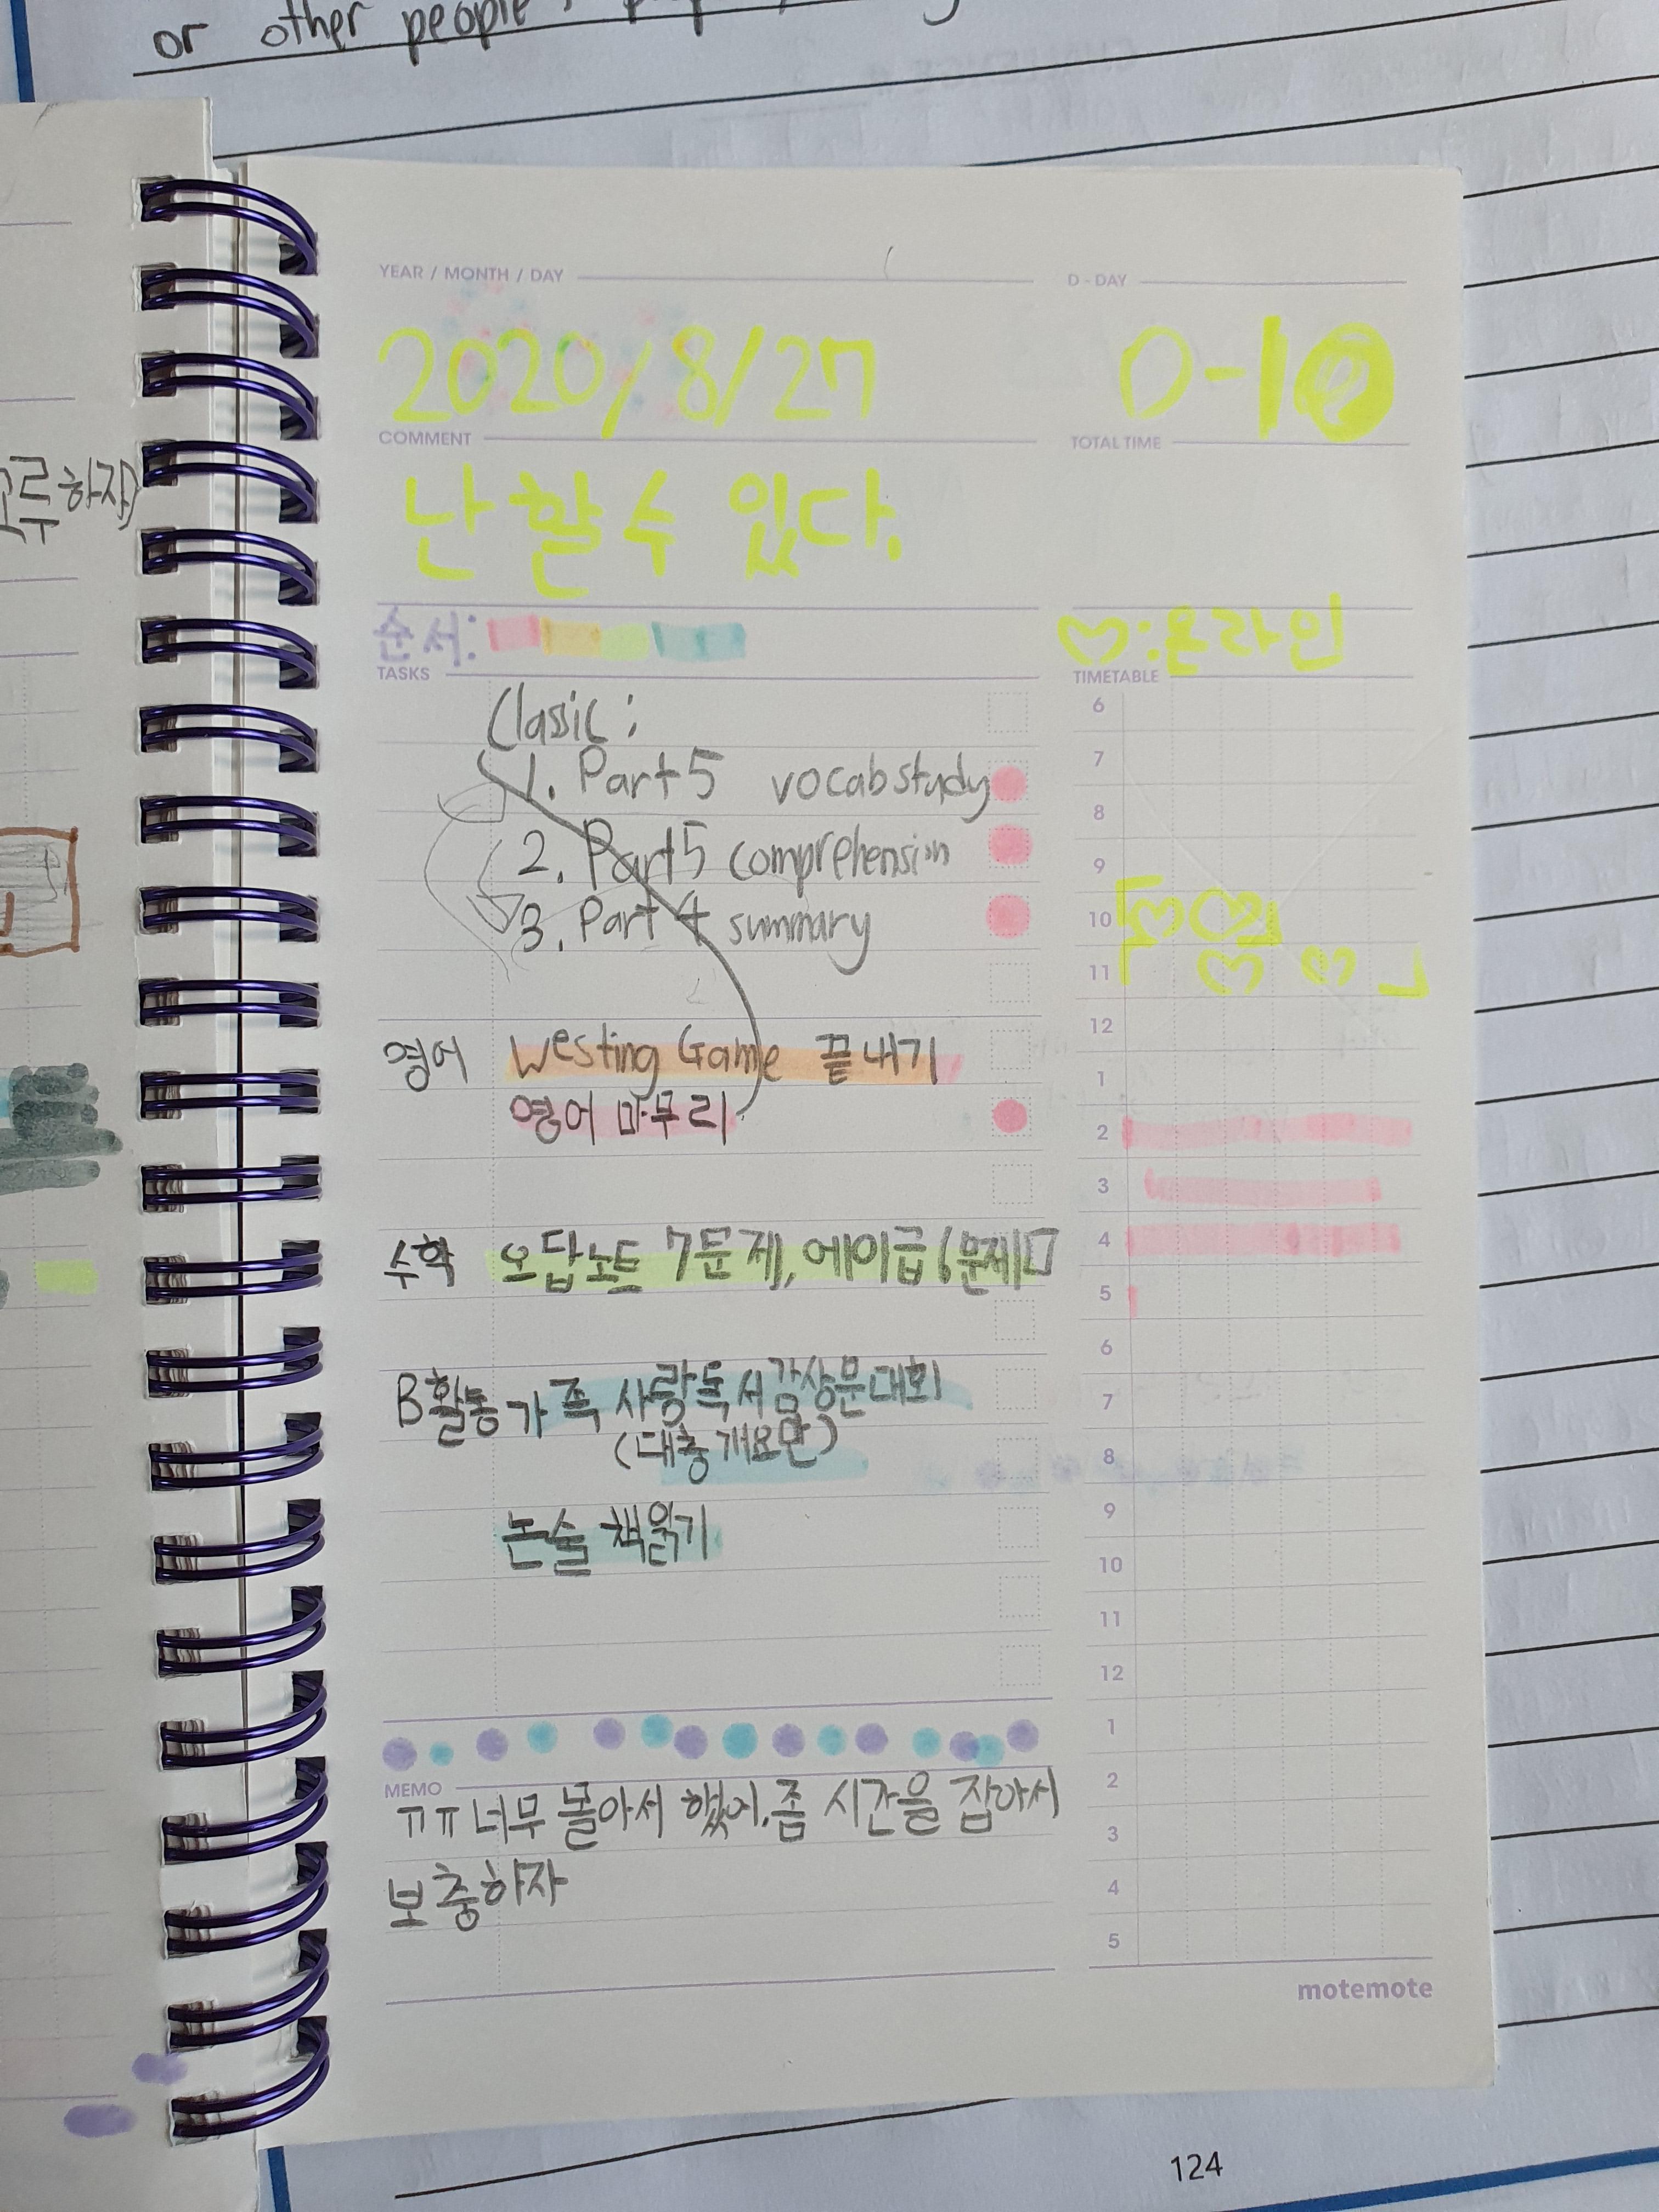 or other people
고루하자)
YEAR / MONTH / DAY
D - DAY
2020/8/27
D-10
COMMENT
TOTAL TIME
난 할 수 있다.
순서:
♡:온라인
TASKS
TIMETABLE
Classic:
1. Part 5 vocab study
2. Part 5 comprehension
3. Part 4 summary
영어 Westing Game 끝내기
영어 마무리
수학 오답노트 7문제, 에이급 6문제
B활동 가족 사랑 독서감상문대회
(대충개요만)
논술 책읽기
6
7
8
9
10
11
12
1
2
3
4
5
6
7
8
9
10
11
12
1
2
3
4
5
MEMO
ㅠㅠ 너무 몰아서 했어. 좀 시간을 잡아서
보충하자
motemote
124